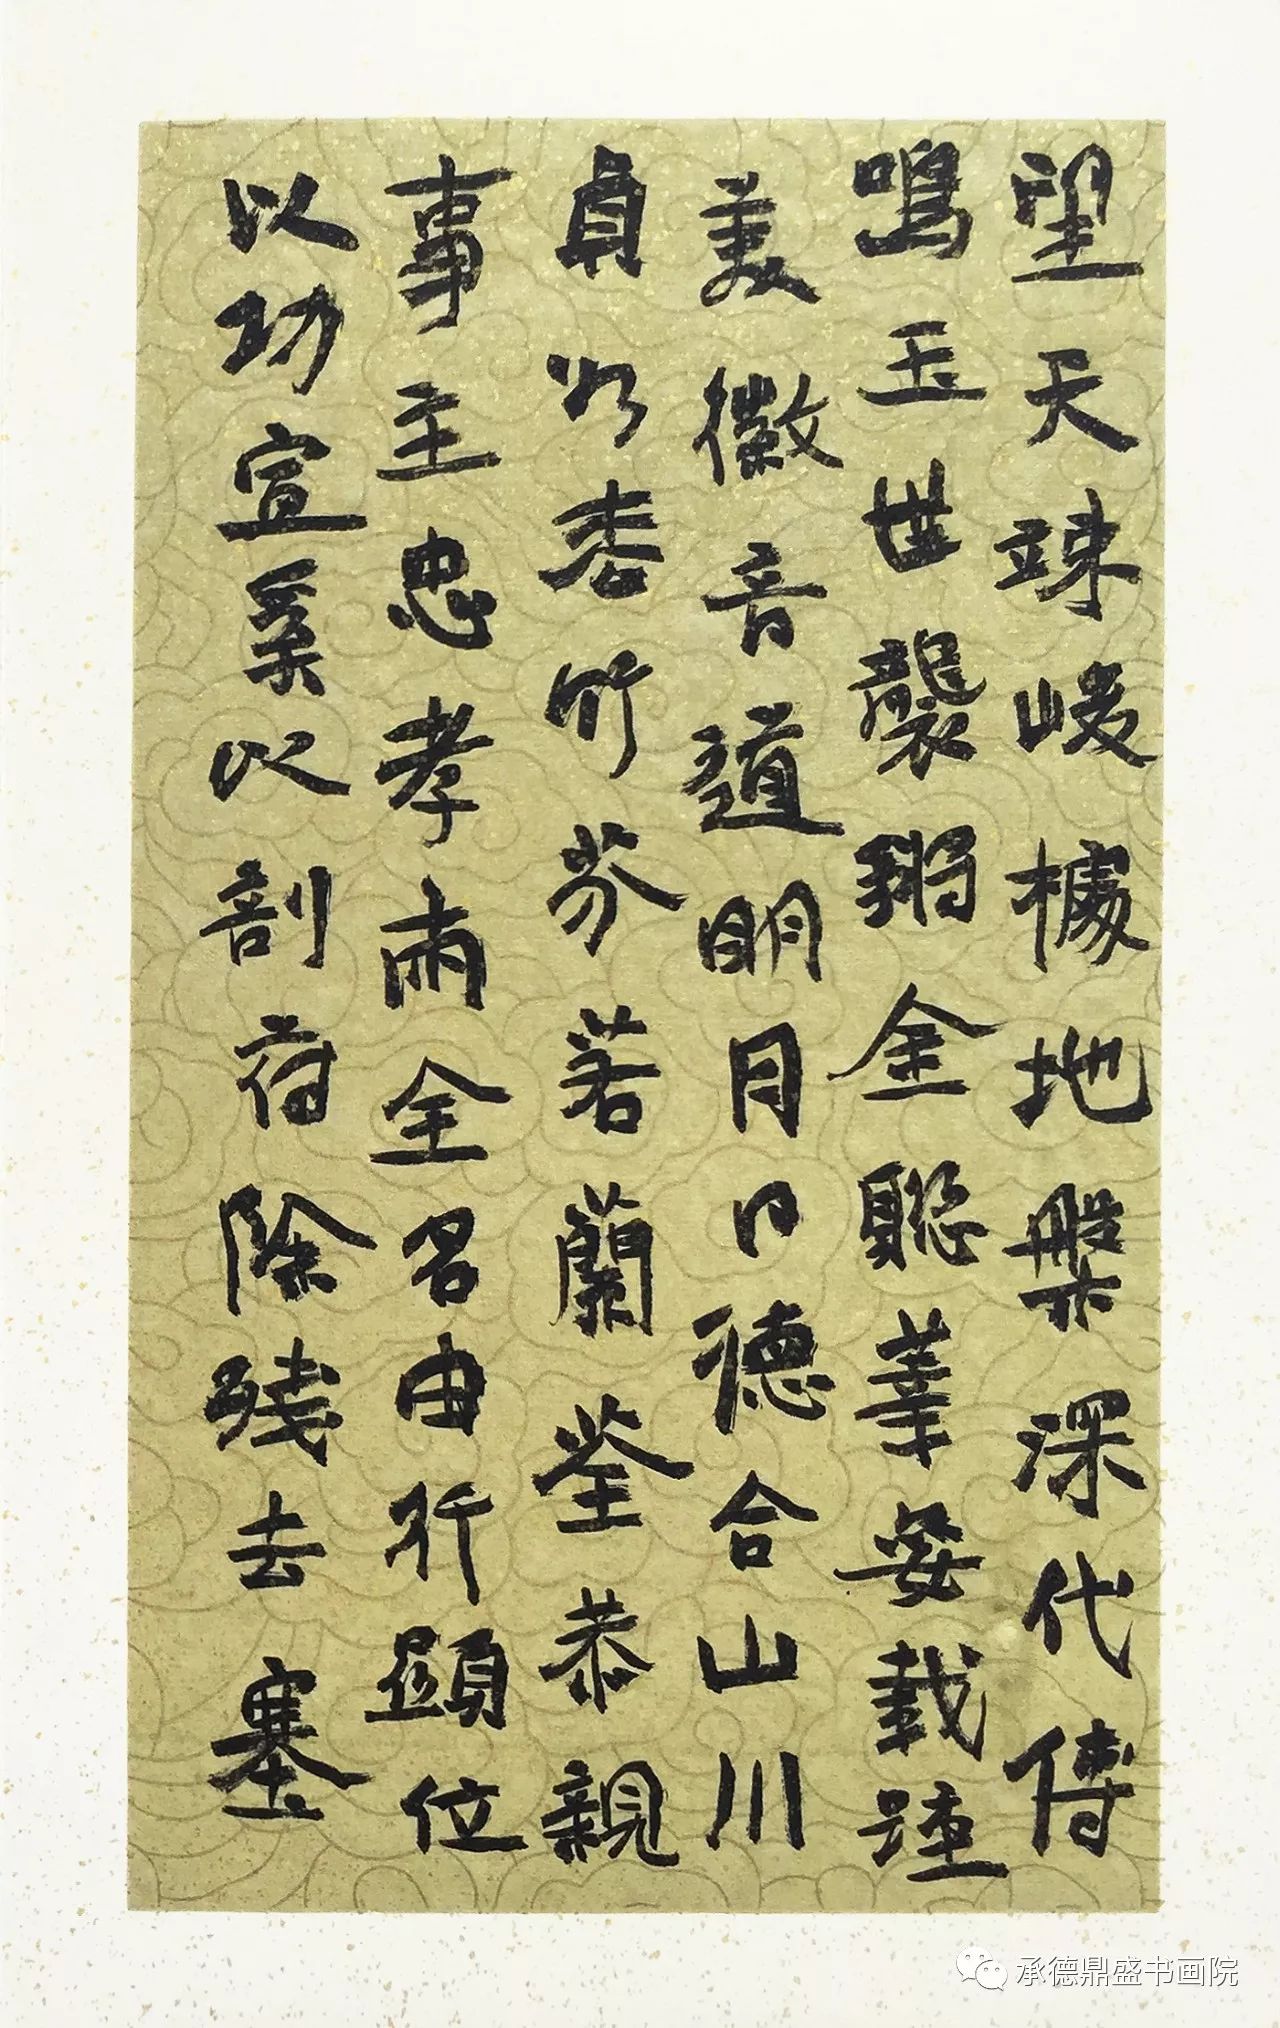 望天竦峻據地槃深代傳
鳴玉世襲鏘金聮華安載踵
美徽音道明月日德合山川
貞如枩竹芬若蘭荃恭親
事主忠孝兩全名由行顯位
以功宣奚以剖苻除殘去塞
承德鼎盛书画院